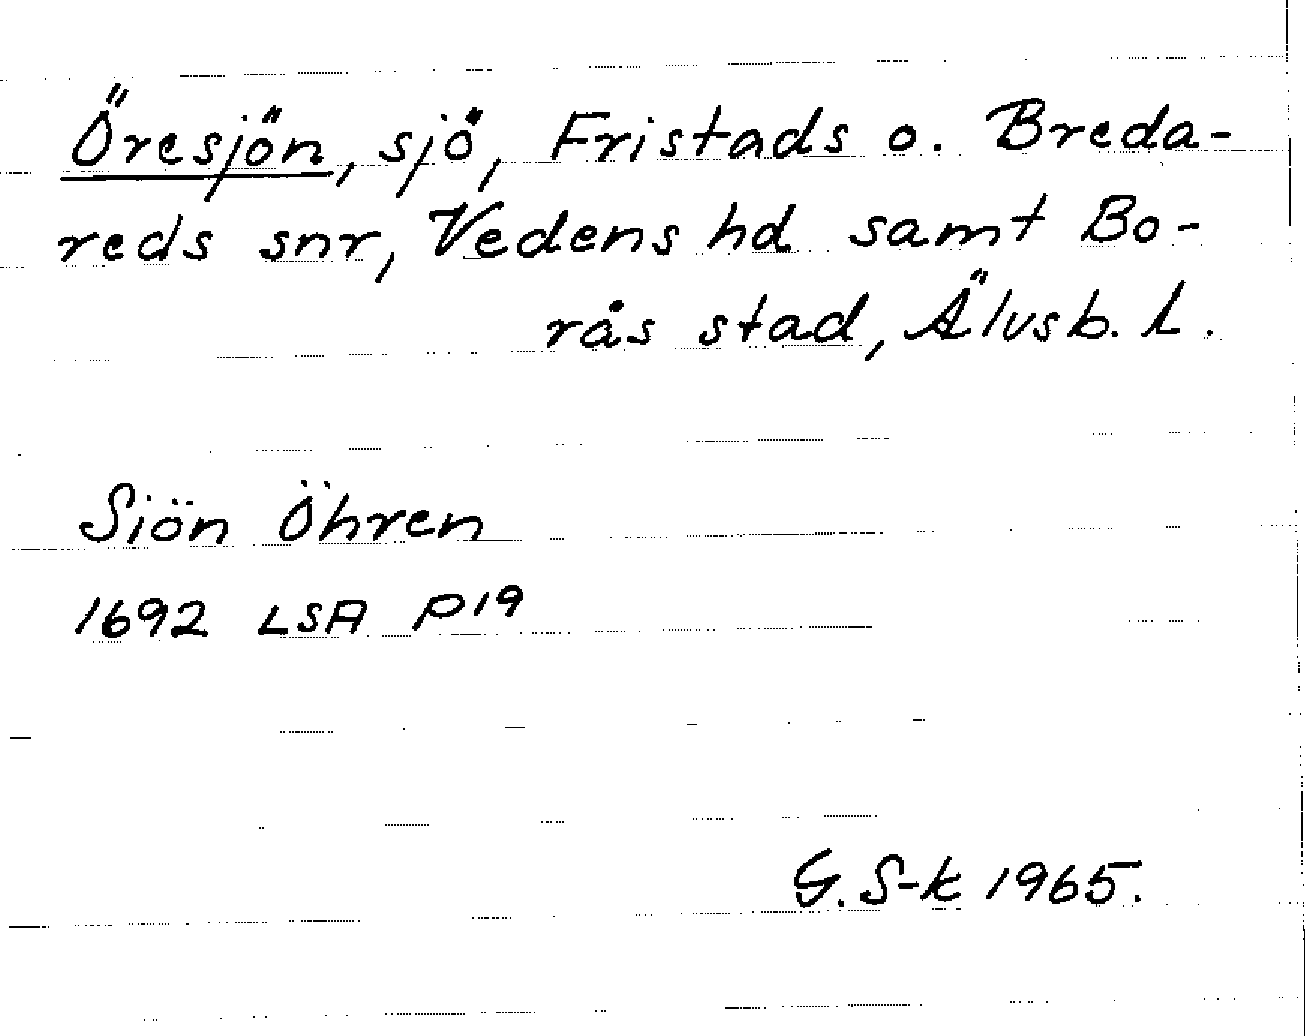 Öresjön, sjö, Fristads o. Breda-
reds snr, Vedens hd samt Bo-
rås stad, Älvsb. L.
Siön Öhren
1692 LSA P19
G. S-k 1965.